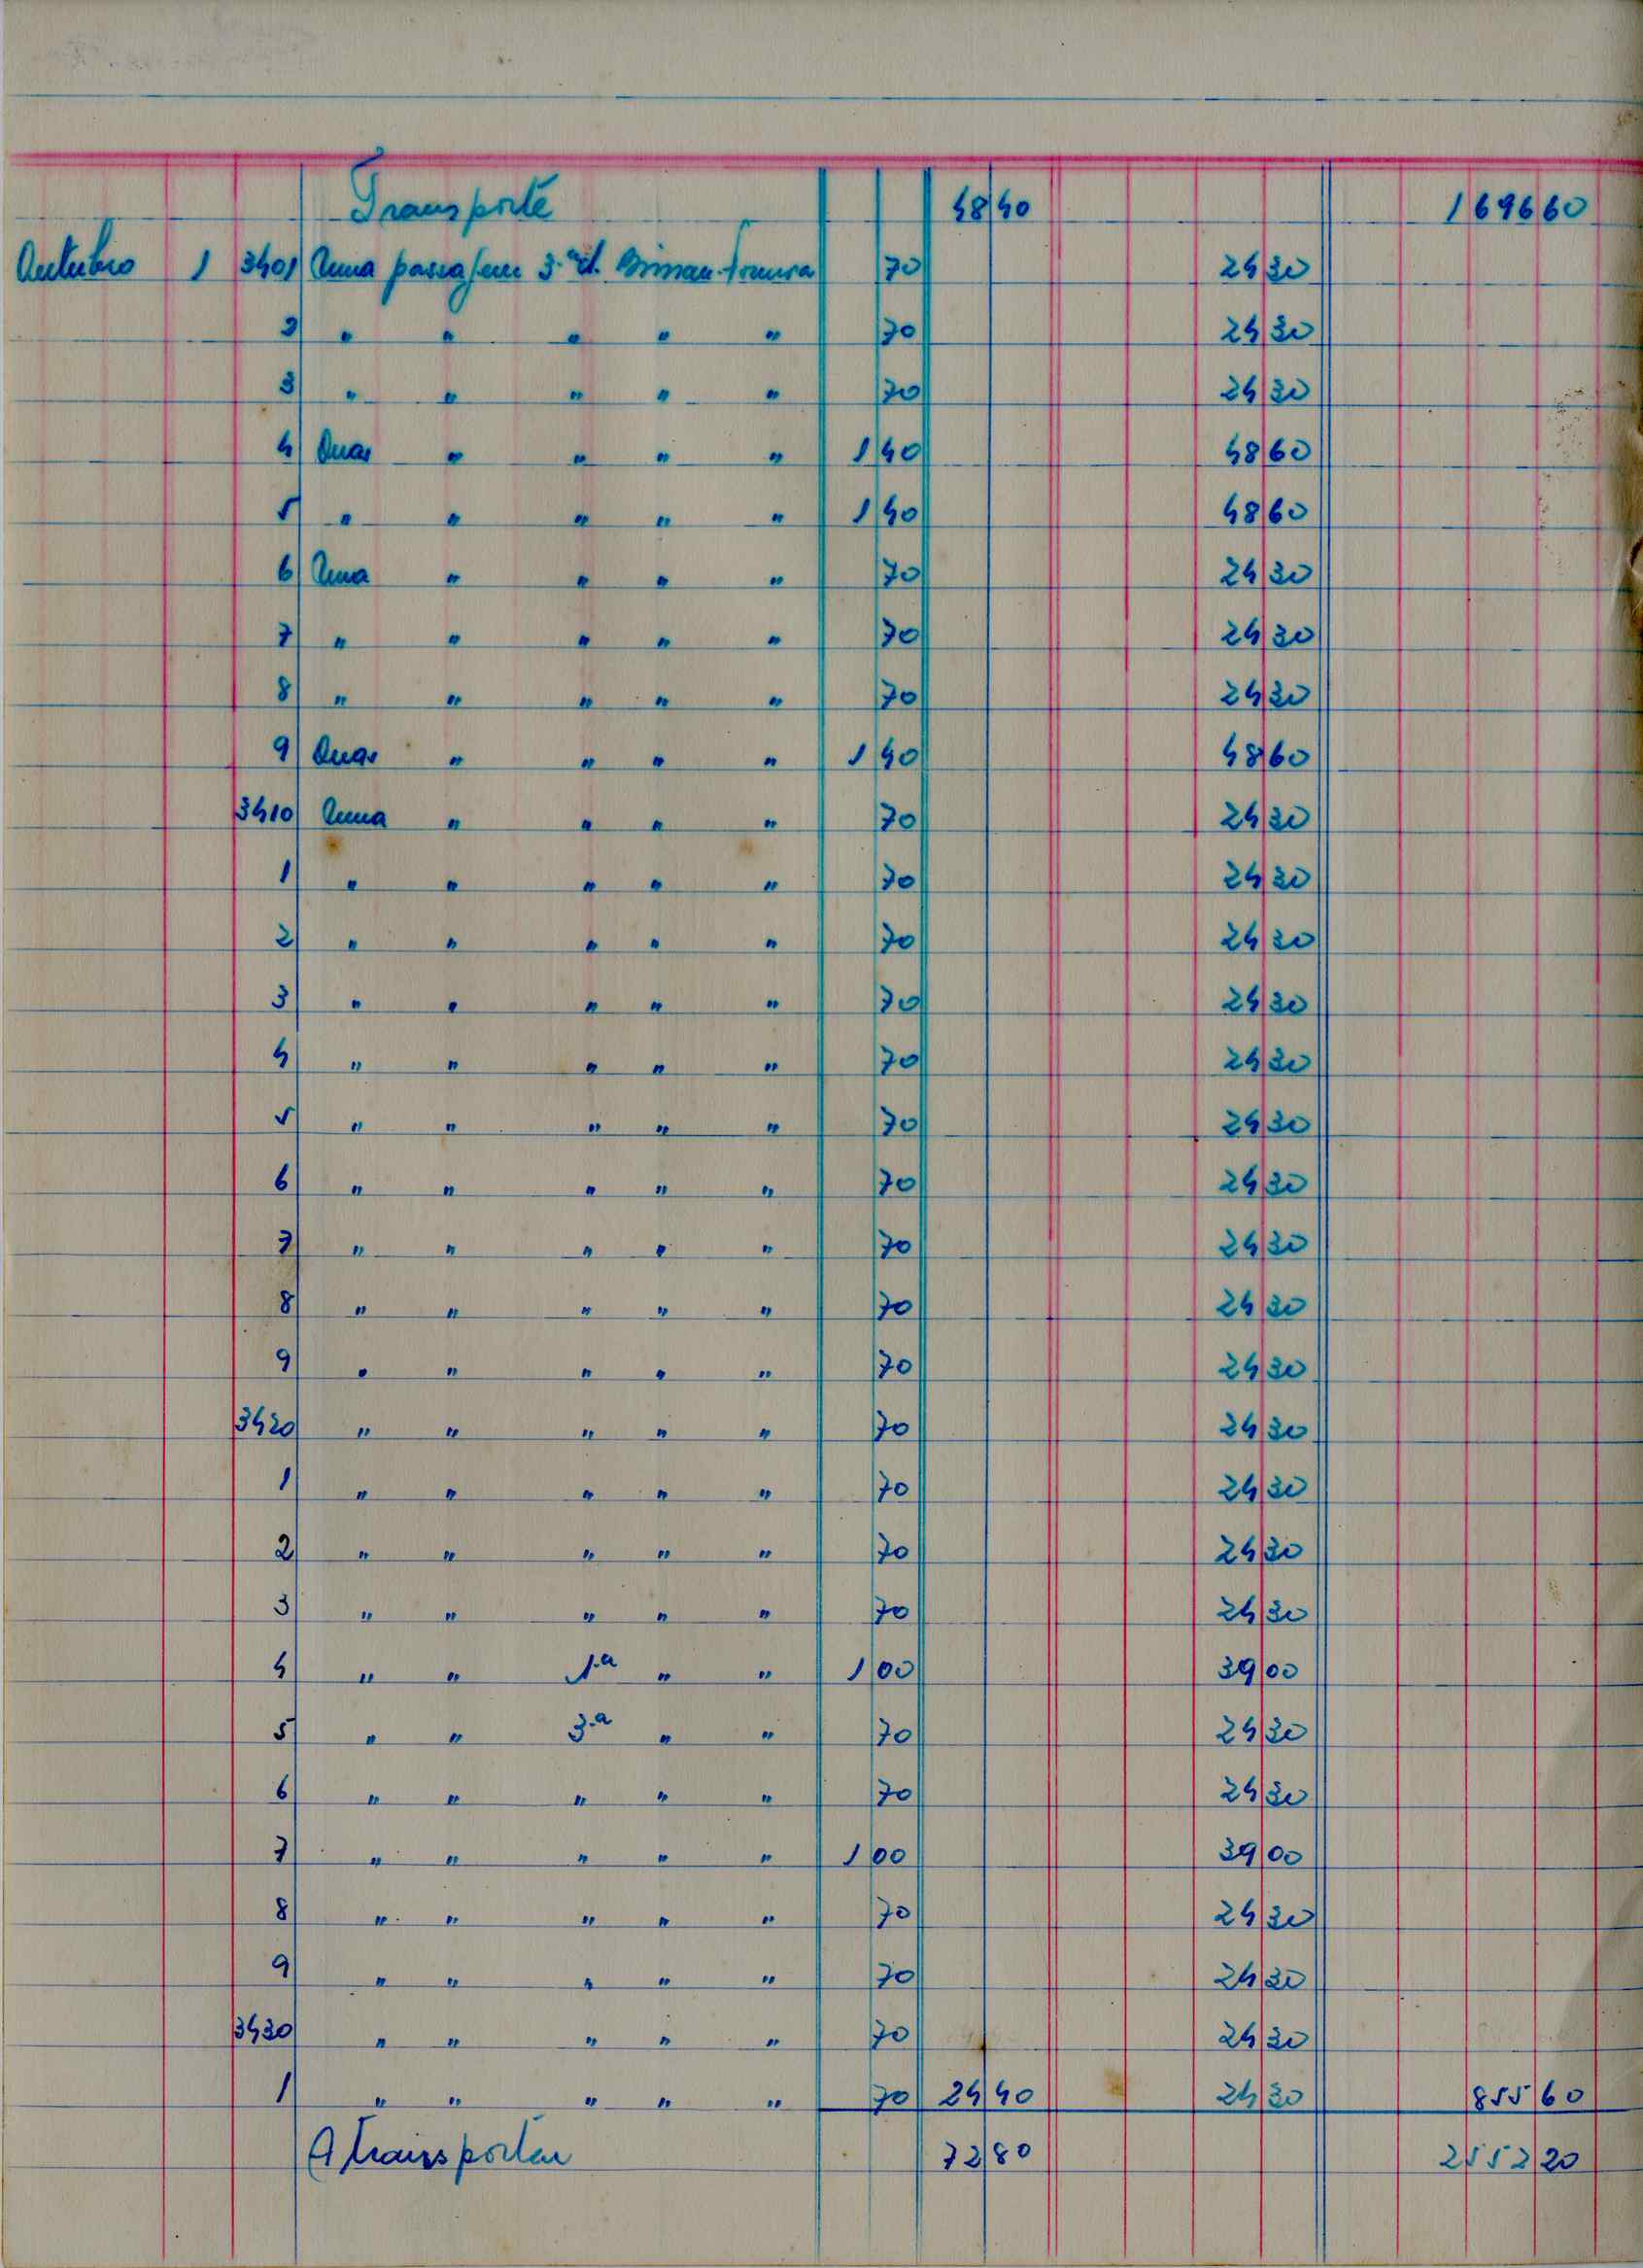 Transporte 48 40 1696 60
Outubro 1 3401 Uma passagem 3.ª cl. 70 24 30
2 " " " " " 70 24 30
3 " " " " " 70 24 30
4 Duas " " " " 1 40 48 60
5 " " " " " 1 40 48 60
6 Uma " " " " 70 24 30
7 " " " " " 70 24 30
8 " " " " " 70 24 30
9 Duas " " " " 1 40 48 60
3410 Uma " " " " 70 24 30
1 " " " " " 70 24 30
2 " " " " " 70 24 30
3 " " " " " 70 24 30
4 " " " " " 70 24 30
5 " " " " " 70 24 30
6 " " " " " 70 24 30
7 " " " " " 70 24 30
8 " " " " " 70 24 30
9 " " " " " 70 24 30
3420 " " " " " 70 24 30
1 " " " " " 70 24 30
2 " " " " " 70 24 30
3 " " " " " 70 24 30
4 " " 1.ª " " 1 00 39 00
5 " " 3.ª " " 70 24 30
6 " " " " " 70 24 30
7 " " " " " 1 00 39 00
8 " " " " " 70 24 30
9 " " " " " 70 24 30
3430 " " " " " 70 24 30
1 " " " " " 70 24 40 24 30 855 60
A transportar 72 80 2552 20